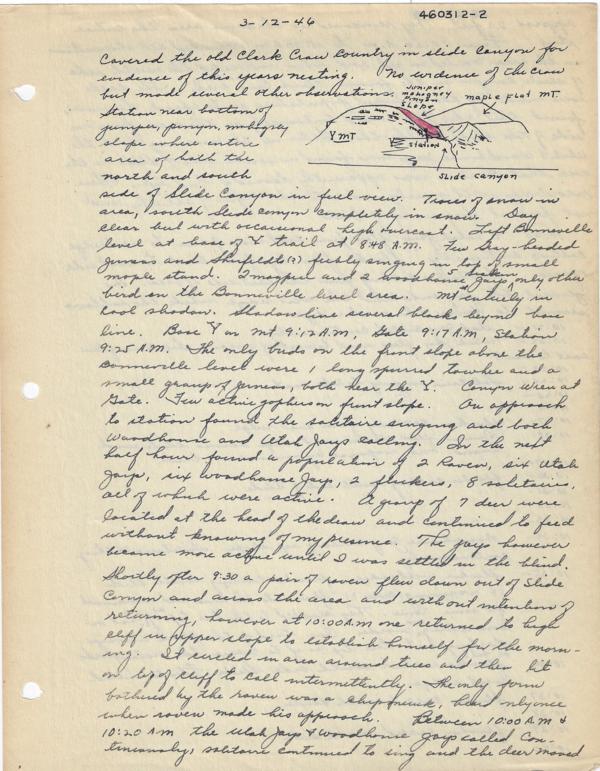 3-12-46
460312-2
Covered the old Clark Crow Country in slide Canyon for
evidence of this years nesting. No evidence of the Crow
but made several other observations:
Station near bottom of
juniper, pinyon, mahogney
slope where entire
area of both the
north and south
juniper
mahogney
pinyon
slope
maple flat mt.
Y MT
station
slide canyon
side of Slide Canyon in full view. Traces of snow in
area, south slide canyon completely in snow. Day
clear but with occasional high overcast. Left Bonneville
level at base of Y trail at 8:48 A.M. Few Gray-headed
juncos and Shufeldts(?) feebly singing in top of small
maple stand. 2 magpies and 2 woodhouse Jays, 5 Siskin only other
bird on the Bonneville level area. Mt entirely in
cool shadow. Shadow line several blocks beyond base
line. Base Y on Mt 9:12 A.M, Gate 9:17 A.M, Station
9:25 A.M. The only birds on the front slope above the
Bonneville level were 1 long spurred towhee and a
small group of juncos, both near the Y. Canyon Wren at
Gate. Few active gophers on front slope. On approach
to station found the solitaire singing and both
Woodhouse and Utah Jays calling. In the next
half hour found a population of 2 Raven, six Utah
Jays, six Woodhouse Jays, 2 flickers, 8 solitaires,
all of which were active. A group of 7 deer were
located at the head of the draw and continued to feed
without knowing of my presence. The jays however
became more active until I was settled in the blind.
Shortly after 9:30 a pair of raven flew down out of Slide
Canyon and across the area and without intention of
returning, however at 10:00 A.M one returned to high
cliff in upper slope to establish himself for the morn-
ing. It circled in area around trees and then lit
on top of cliff to call intermittently. The only form
bothered by the raven was a chipmunk, heard
when raven made his approach. Between 10:00 A.M &
10:20 A.M the Utah Jays & Woodhouse Jays called con-
tinuously, solitaire continued to sing and the deer moved